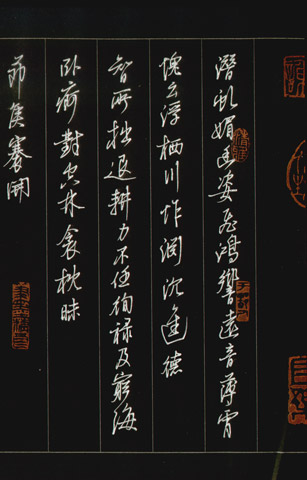 潛虬媚幽姿飛鴻響遠音薄霄
愧云浮栖川怍渊沉進德
智所拙退耕力不任徇祿及窮海
卧痾對空林衾枕昧
節候褰開